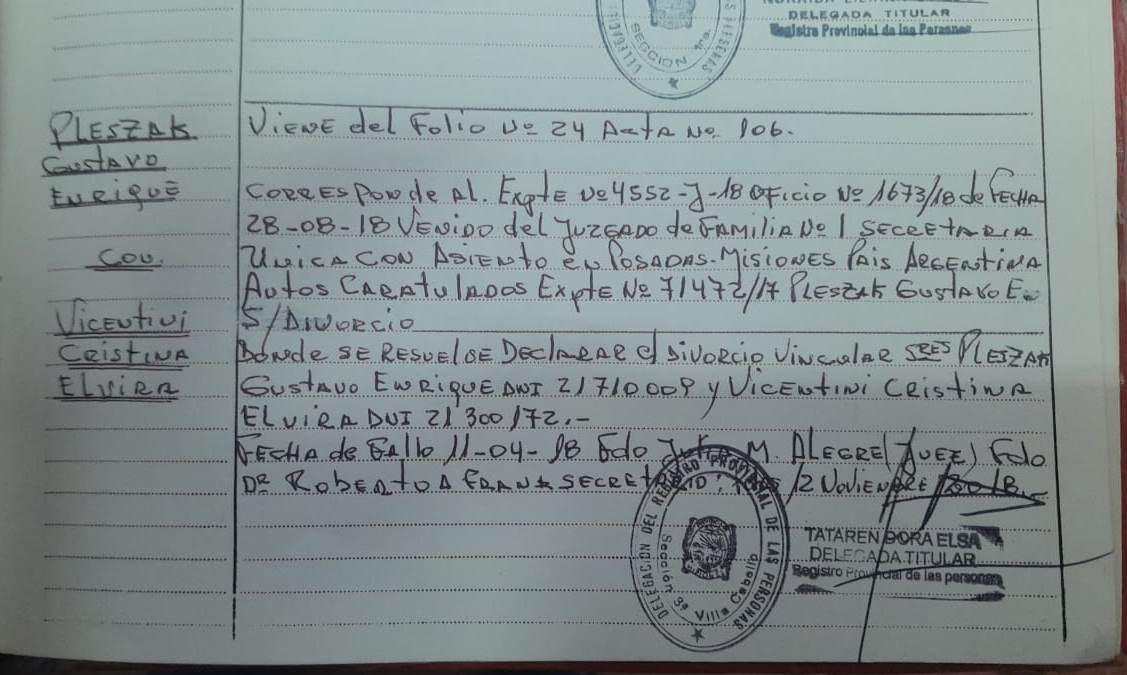 DELEGADA TITULAR
Registro Provincial de las Personas
SECCION 1ra.
PLESZAK
GUSTAVO
ENRIQUE
CON.
VICENTINI
CRISTINA
ELVIRA
VIENE del Folio Nº 24 Acta Nº 106.
CORRESPONDE AL. Expte Nº 4552-J-18 OFICIO Nº 1673/18 de FECHA
28-08-18 VENIDO del JUZGADO de FAMILIA Nº 1 SECRETARIA
UNICA CON ASIENTO en POSADAS-MISIONES PAIS ARGENTINA
AUTOS CARATULADOS EXPTE Nº 71472/17 PLESZAK GUSTAVO E
S/DIVORCIO
DONDE SE RESUELBE DECLARAR el DIVORCIO VINCULAR SRES PLESZAK
GUSTAVO ENRIQUE DNI 21710009 y VICENTINI CRISTINA
ELVIRA DNI 21300172.-
FECHA de FALLO 11-04-18 Fdo M. ALEGRE (JUEZ) Fdo
DR ROBERTO A FRANK SECRETARIO, 12 NOVIEMBRE 2018.
DELEGACION DEL REGISTRO PROVINCIAL DE LAS PERSONAS
Sección 3ª Villa Cabello
TATAREN DORA ELSA
DELEGADA TITULAR
Registro Provincial de las personas